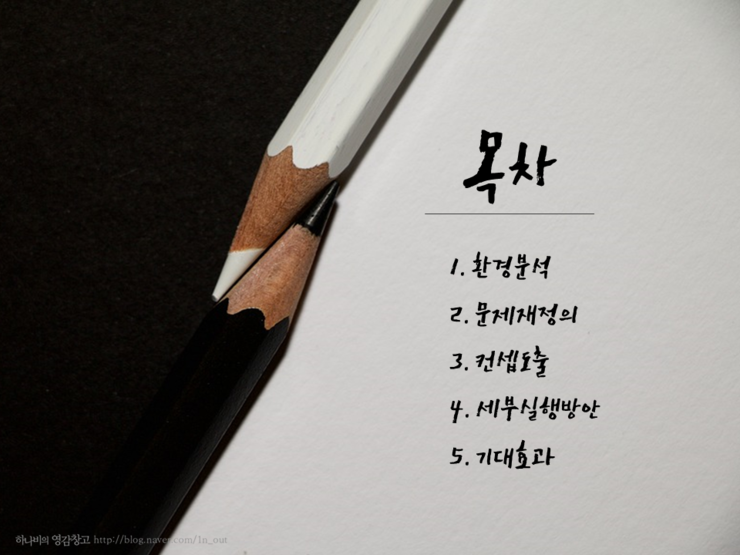 목차
1. 환경분석
2. 문제재정의
3. 컨셉도출
4. 세부실행방안
5. 기대효과
하나비의 영감창고 http://blog.naver.com/1n_out